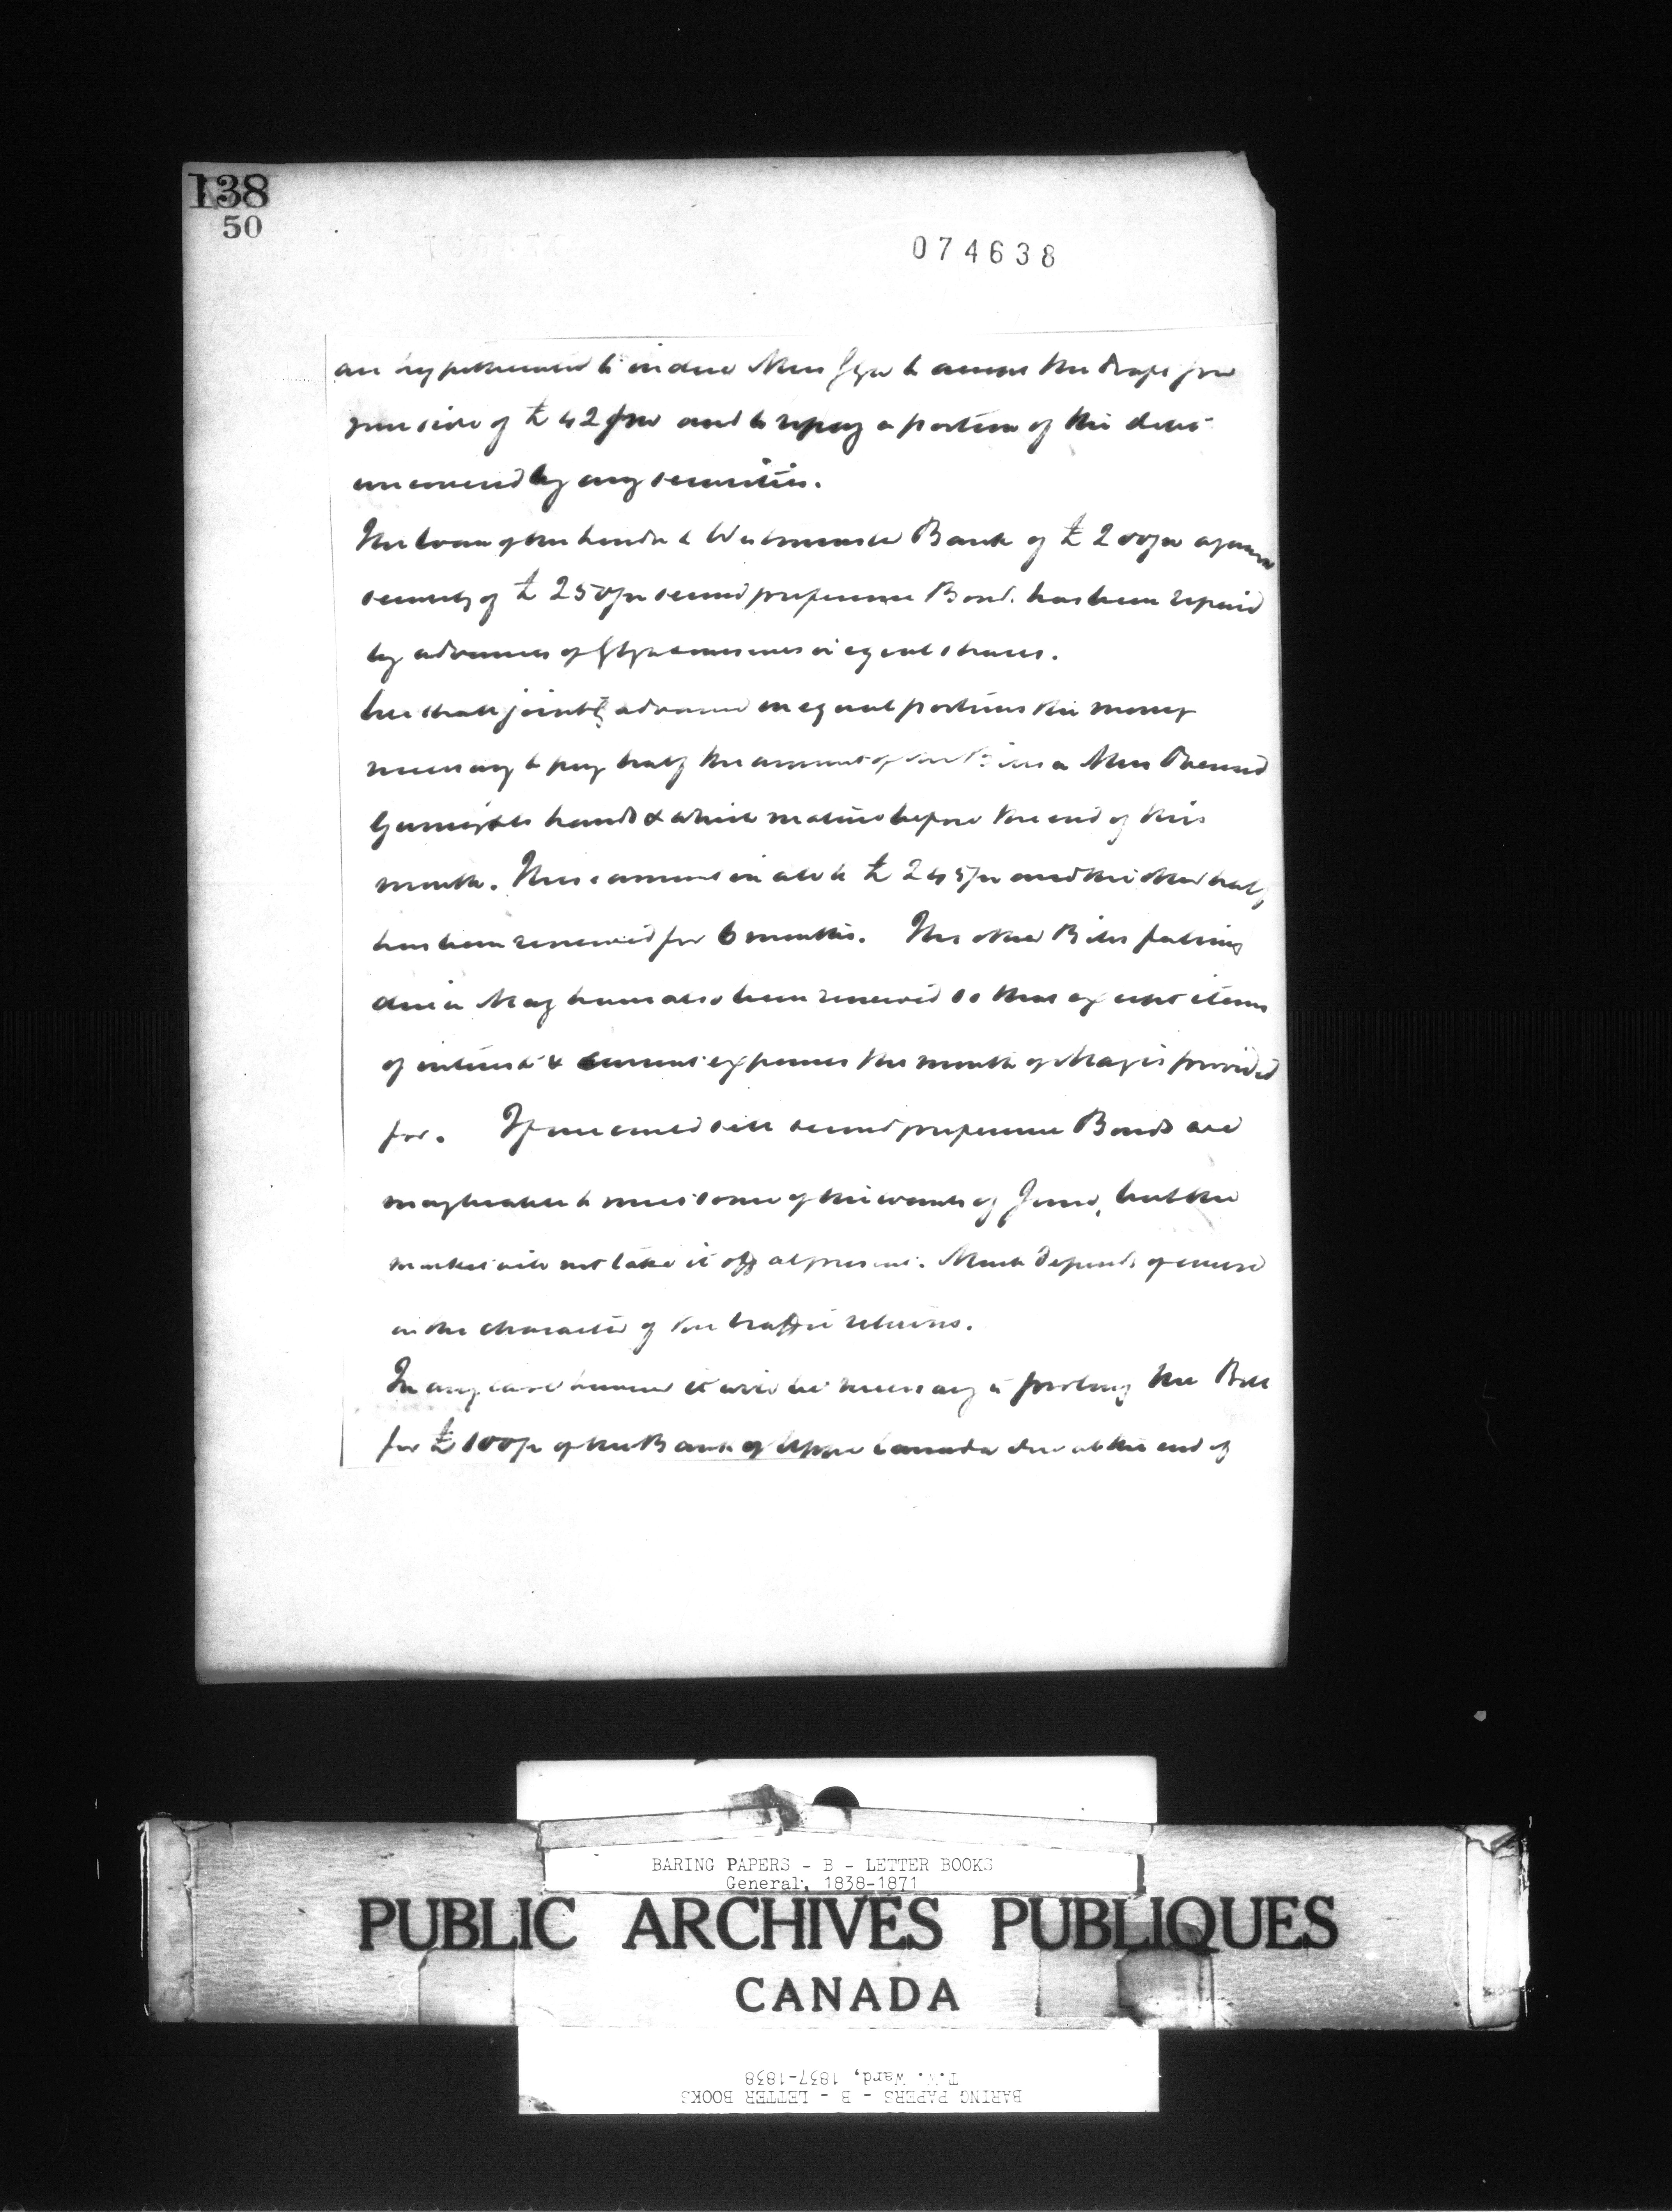 138
50
074638
are hypothecated to induce Mess Glyn to accept the drafts for
provision of £42/m and to repay a portion of the debt
uncovered by any securities.
The loan of the London & Westminster Bank of £200/m against
security of £250/m second preference Bond. has been repaid
by advances of Glyn & ourselves in equal shares.
We shall jointly advance in equal portions the money
necessary to pay half the amount of the Bills in Mess Overend
Gurney & Co hands & which mature before the end of this
month. These amount in all to £245/m and the other half
has been renewed for 6 months. The other Bills falling
due in May have also been renewed so that except items
of interest & current expenses the month of May is provided
for. If we could sell second preference Bonds we
may be able to meet some of the wants of June, but the
market will not take it off at present. Much depends of course
on the character of the traffic returns.
In any case however it will be necessary to prolong the Bill
for £100/m of the Bank of Upper Canada due at the end of
BARING PAPERS - B - LETTER BOOKS
General, 1838-1871
PUBLIC ARCHIVES PUBLIQUES
CANADA
T.W. Ward, 1837-1838
BARING PAPERS - B - LETTER BOOKS